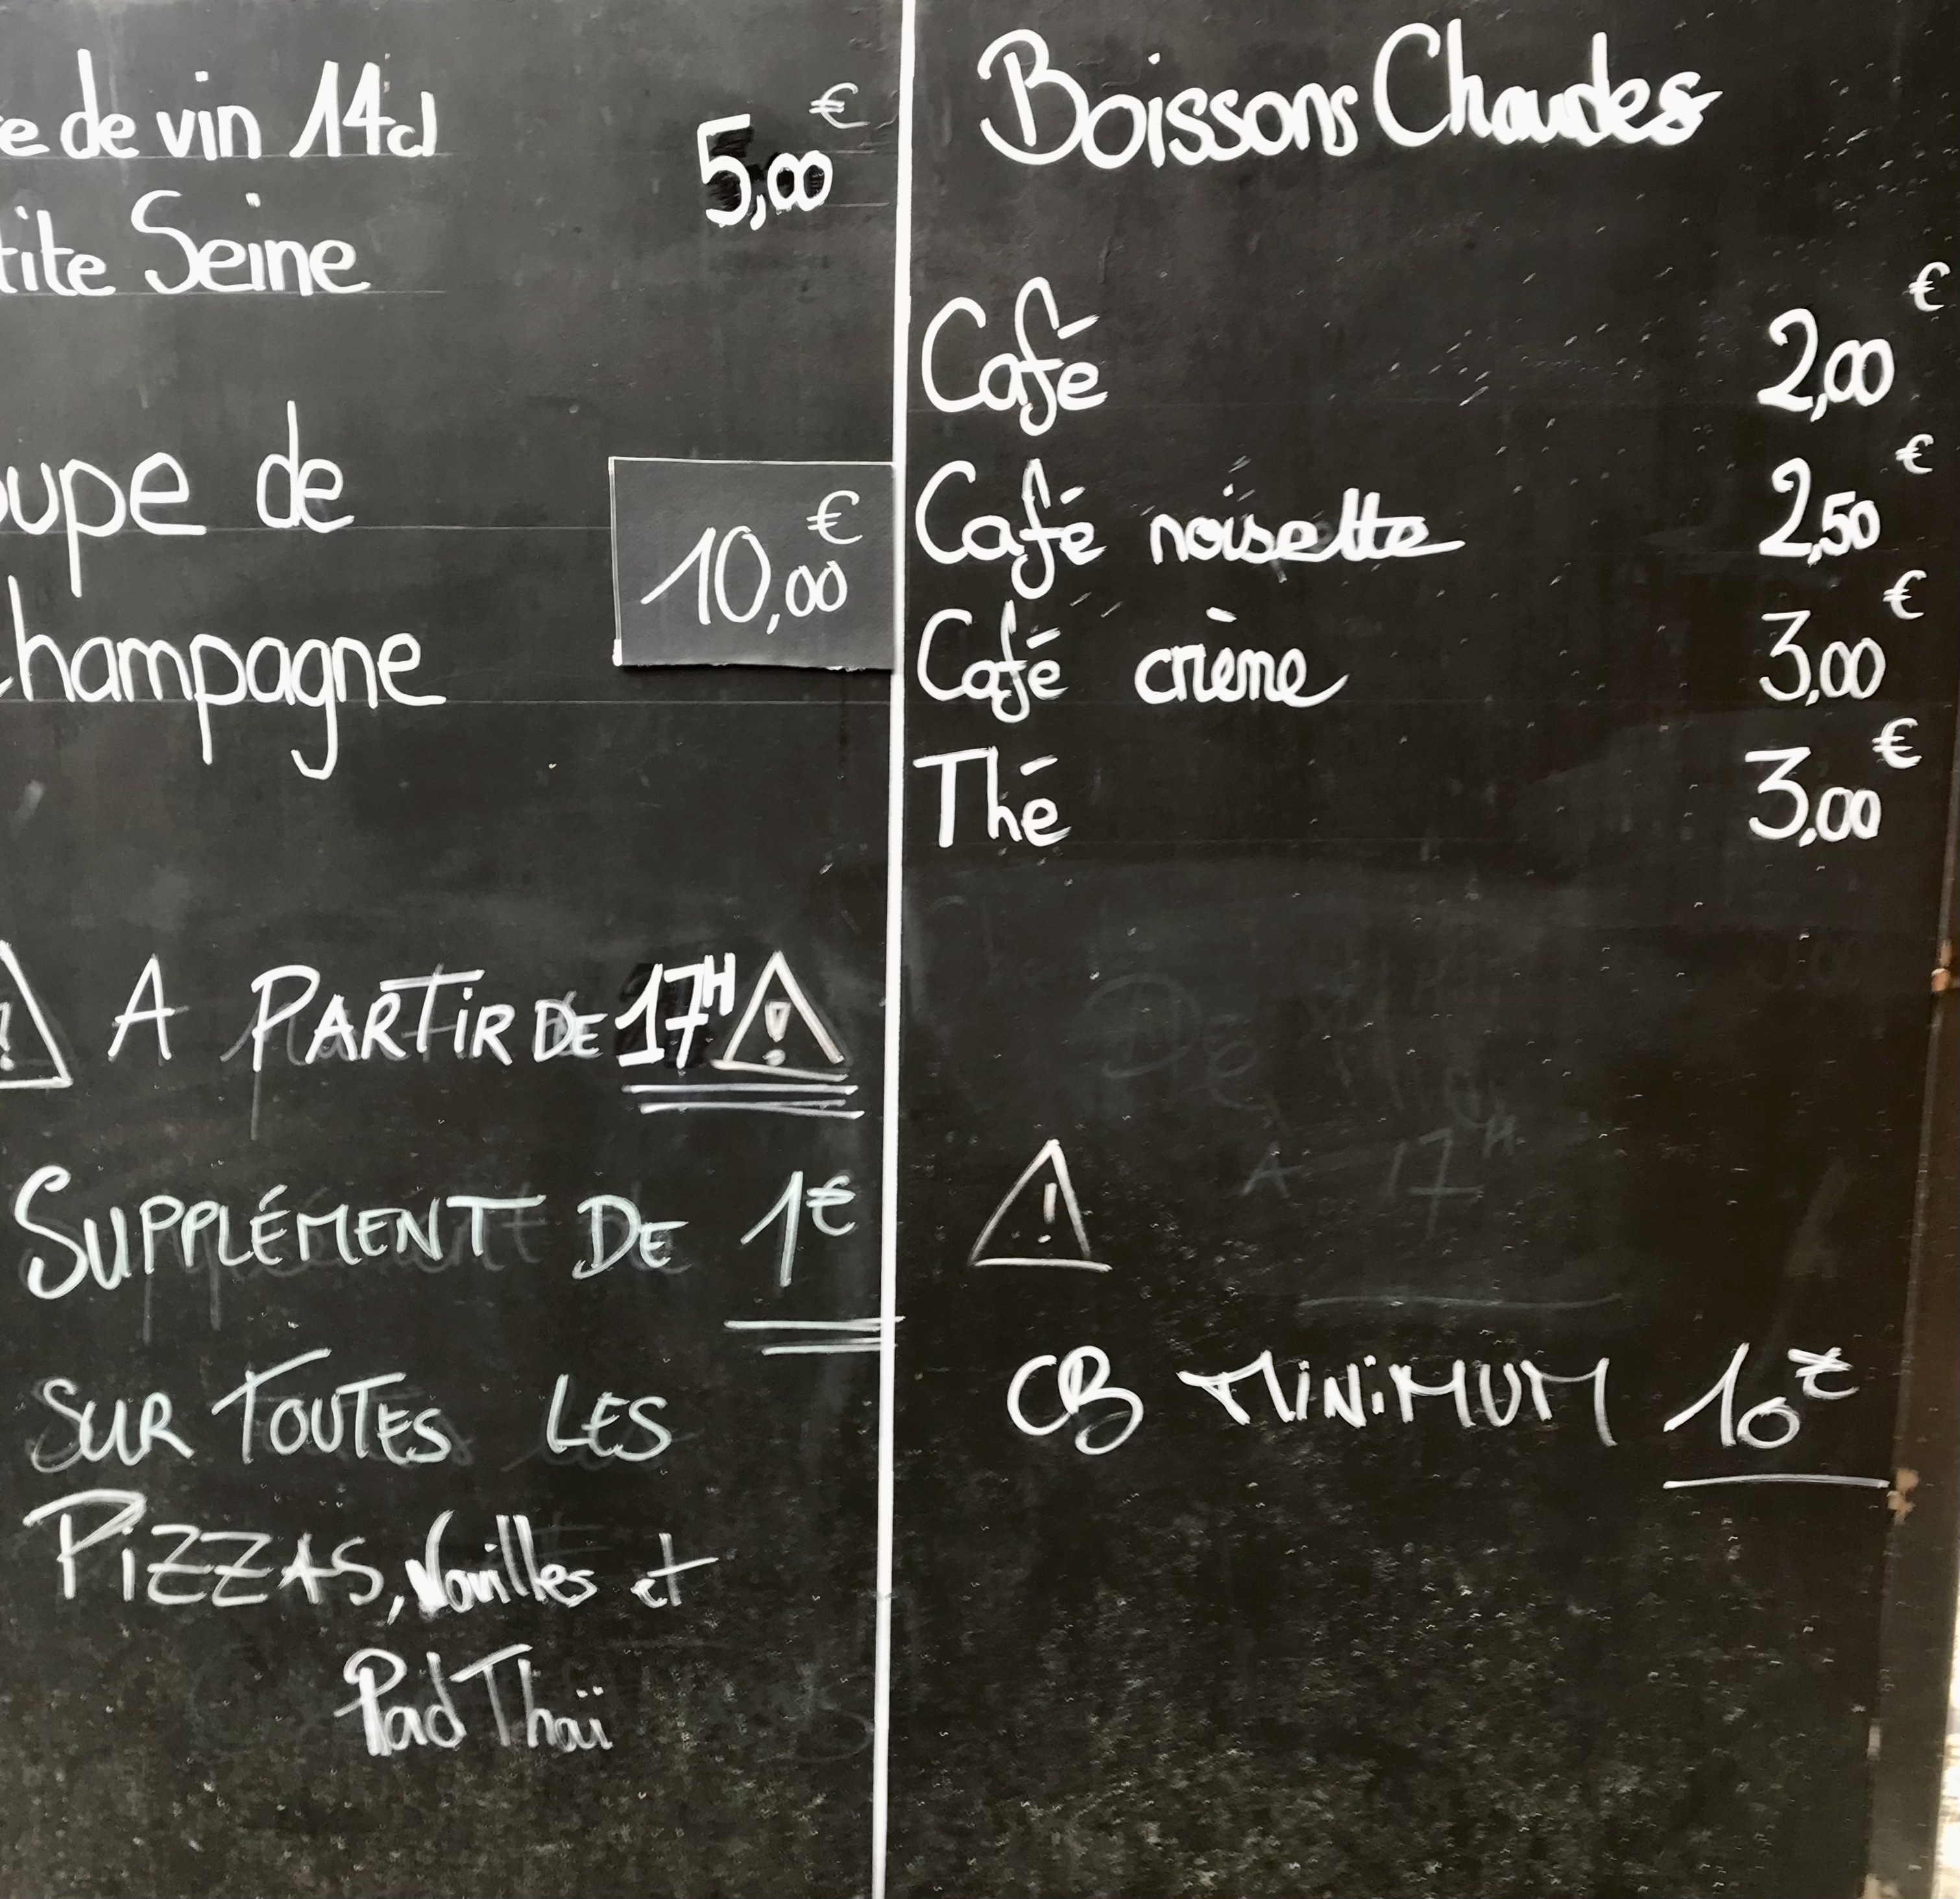 e de vin 14cl 5,00 €
tite Seine
oupe de
champagne 10,00 €
A PARTIR DE 17H
SUPPLÉMENT DE 1€
SUR TOUTES LES
PIZZAS, Nouilles et
Pad Thaï
Boissons Chaudes
Café 2,00 €
Café noisette 2,50 €
Café crème 3,00 €
Thé 3,00 €
A 17H
CB MINIMUM 10€